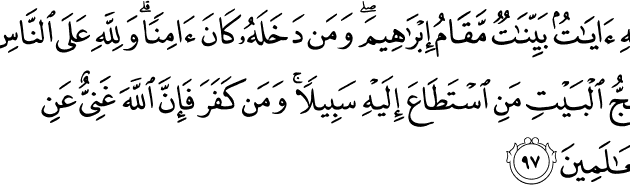 هِ ءَايَٰتٌۢ بَيِّنَٰتٌ مَّقَامُ إِبْرَٰهِيمَ ۖ وَمَن دَخَلَهُۥ كَانَ ءَامِنًا ۗ وَلِلَّهِ عَلَى ٱلنَّاسِ
جُّ ٱلْبَيْتِ مَنِ ٱسْتَطَاعَ إِلَيْهِ سَبِيلًا ۚ وَمَن كَفَرَ فَإِنَّ ٱللَّهَ غَنِىٌّ عَنِ
عَٰلَمِينَ ٩٧